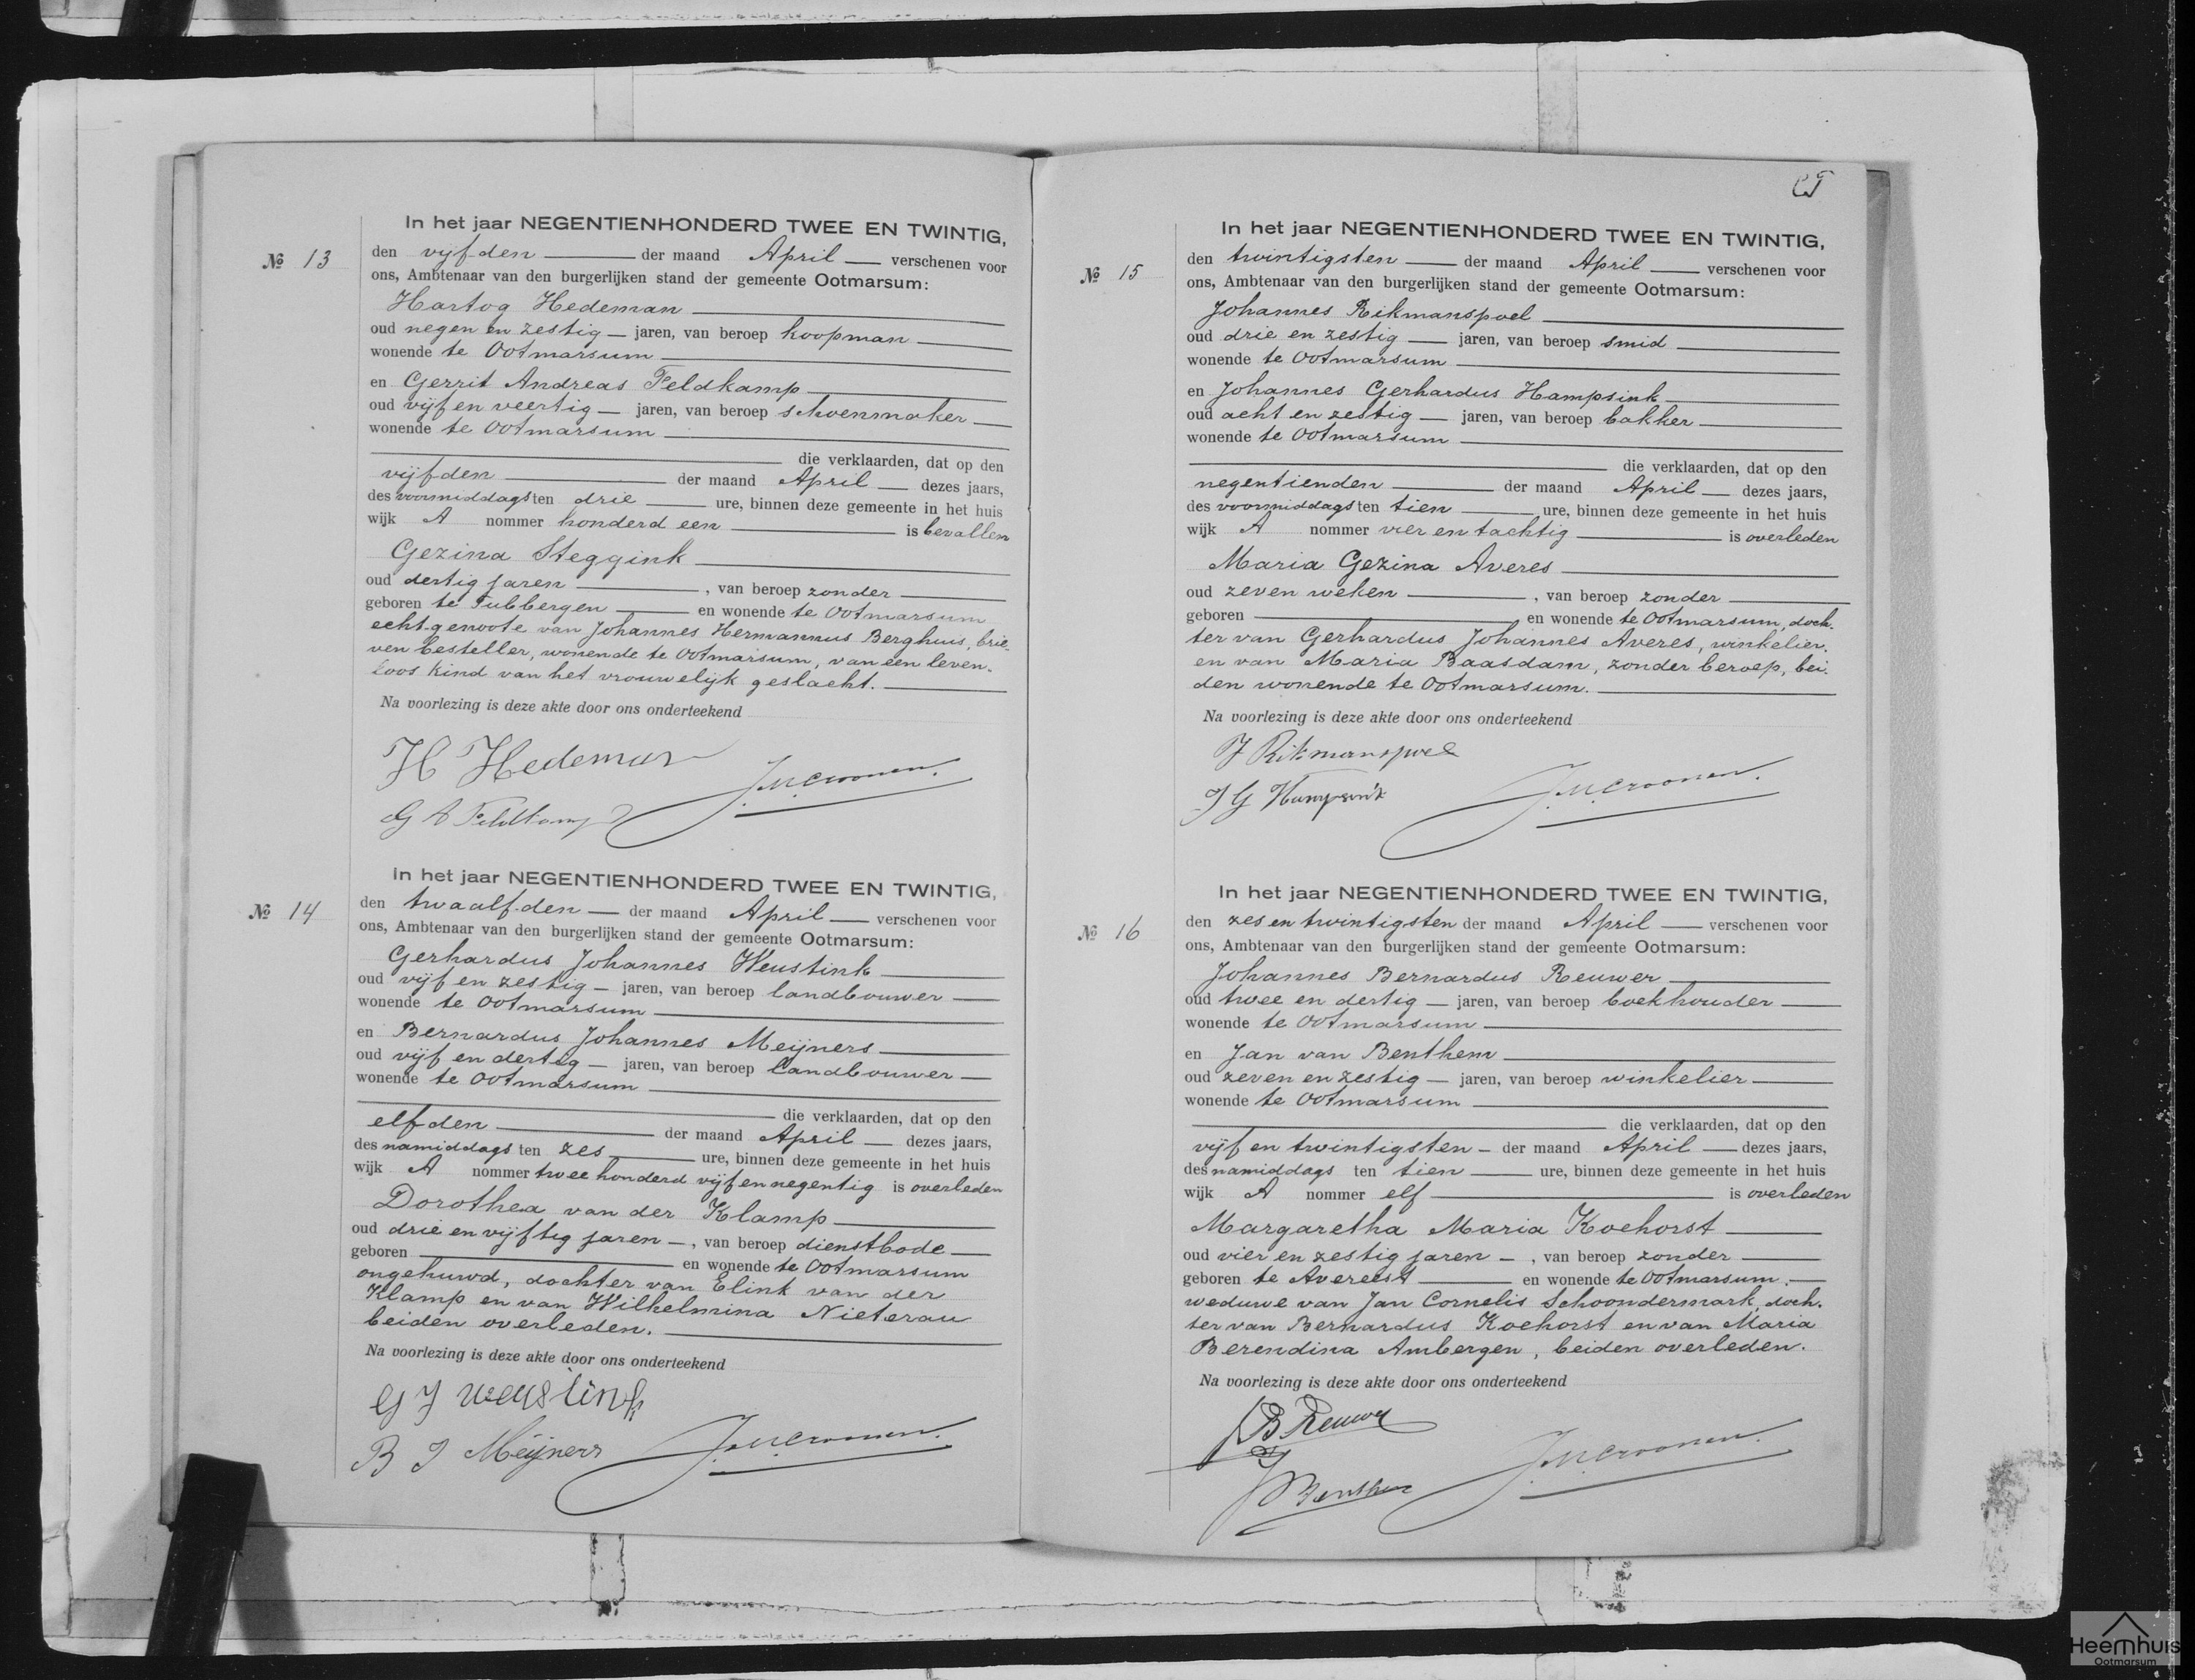 In het jaar NEGENTIENHONDERD TWEE EN TWINTIG,
№ 13
den vijfden der maand April verschenen voor
ons, Ambtenaar van den burgerlijken stand der gemeente Ootmarsum:
Hartog Hedeman
oud negen en zestig jaren, van beroep koopman
wonende te Ootmarsum
en Gerrit Andreas Feldkamp
oud vijf en veertig jaren, van beroep schoenmaker
wonende te Ootmarsum
die verklaarden, dat op den
vijfden der maand April dezes jaars,
des voormiddags ten drie ure, binnen deze gemeente in het huis
wijk A nommer honderd een is bevallen
Gezina Steggink
oud dertig jaren, van beroep zonder
geboren te Tubbergen en wonende te Ootmarsum
echtgenoote van Johannes Hermannus Berghuis, brie-
ven besteller, wonende te Ootmarsum, van een leven-
loos kind van het vrouwelijk geslacht.
Na voorlezing is deze akte door ons onderteekend
H Hedeman
J.M.Croonen.
G A Feldkamp
In het jaar NEGENTIENHONDERD TWEE EN TWINTIG,
№ 14
den twaalfden der maand April verschenen voor
ons, Ambtenaar van den burgerlijken stand der gemeente Ootmarsum:
Gerhardus Johannes Weustink
oud vijf en zestig jaren, van beroep landbouwer
wonende te Ootmarsum
en Bernardus Johannes Meijners
oud vijf en dertig jaren, van beroep landbouwer
wonende te Ootmarsum
die verklaarden, dat op den
elfden der maand April dezes jaars,
des namiddags ten zes ure, binnen deze gemeente in het huis
wijk A nommer twee honderd vijf en negentig is overleden
Dorothea van der Klamp
oud drie en vijftig jaren, van beroep dienstbode
geboren en wonende te Ootmarsum
ongehuwd, dochter van Elink van der
Klamp en van Wilhelmina Nieterau
beiden overleden.
Na voorlezing is deze akte door ons onderteekend
G J weustink
B J Meijners
J.M.Croonen.
In het jaar NEGENTIENHONDERD TWEE EN TWINTIG,
№ 15
den twintigsten der maand April verschenen voor
ons, Ambtenaar van den burgerlijken stand der gemeente Ootmarsum:
Johannes Rikmanspoel
oud drie en zestig jaren, van beroep smid
wonende te Ootmarsum
en Johannes Gerhardus Hampsink
oud acht en zestig jaren, van beroep bakker
wonende te Ootmarsum
die verklaarden, dat op den
negentienden der maand April dezes jaars,
des voormiddags ten tien ure, binnen deze gemeente in het huis
wijk A nommer vier en tachtig is overleden
Maria Gezina Averes
oud zeven weken, van beroep zonder
geboren en wonende te Ootmarsum, doch-
ter van Gerhardus Johannes Averes, winkelier,
en van Maria Baasdam, zonder beroep, bei-
den wonende te Ootmarsum.
Na voorlezing is deze akte door ons onderteekend
J Rikmanspoel
J G Hampsink
J.M.Croonen.
In het jaar NEGENTIENHONDERD TWEE EN TWINTIG,
№ 16
den zes en twintigsten der maand April verschenen voor
ons, Ambtenaar van den burgerlijken stand der gemeente Ootmarsum:
Johannes Bernardus Reuwer
oud twee en dertig jaren, van beroep boekhouder
wonende te Ootmarsum
en Jan van Benthem
oud zeven en zestig jaren, van beroep winkelier
wonende te Ootmarsum
die verklaarden, dat op den
vijf en twintigsten der maand April dezes jaars,
des namiddags ten tien ure, binnen deze gemeente in het huis
wijk A nommer elf is overleden
Margaretha Maria Koehorst
oud vier en zestig jaren, van beroep zonder
geboren te Avereest en wonende te Ootmarsum,
weduwe van Jan Cornelis Schoondermark, doch-
ter van Bernardus Koehorst en van Maria
Berendina Ambergen, beiden overleden.
Na voorlezing is deze akte door ons onderteekend
JB Reuwer
J Benthem
J.M.Croonen.
Heemhuis
Ootmarsum